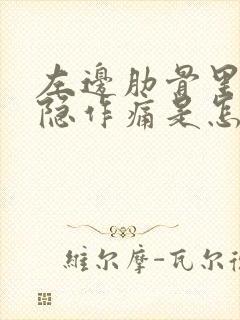 左邊肋骨里
隐作痛是怎
維尔摩-瓦尔